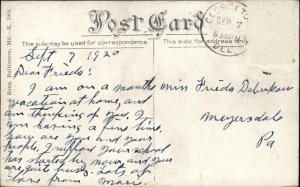 Post Card
This side may be used for correspondence
This side is for the address
Sept 7 1920
Dear Frieda:
I am on a months
vacation at home, and
am thinking of you. I
you having a fine time.
how are you and your
people. I suppose your school
has started by now, and you
are quite busy. Lots of
love from Marie.
Miss Frieda
Meyersdale
Pa
Sons, Baltimore, Md.
SEP 7